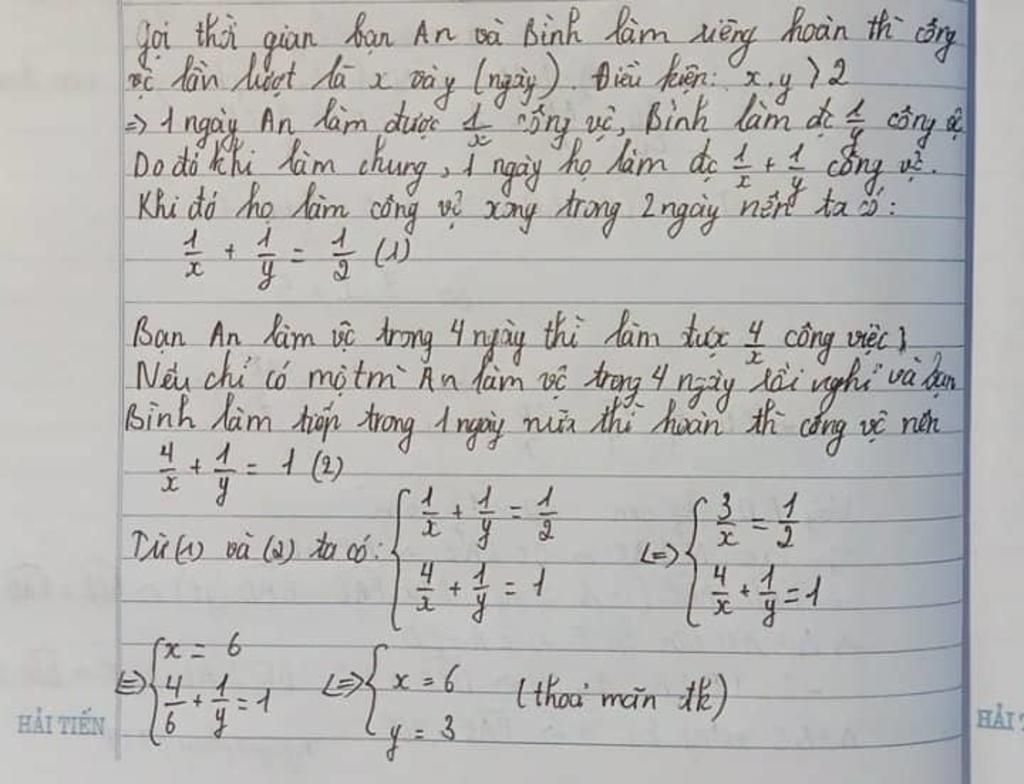 Gọi thời gian bạn An và Bình làm riêng hoàn th̀ công
vc lần lượt là x và y (ngày). Điều kiện: x, y > 2
=> 1 ngày An làm được 1/x công vc, Bình làm đc 1/y công vc
Do đó khi làm chung, 1 ngày họ làm đc 1/x + 1/y công vc.
Khi đó họ làm công vc xong trong 2 ngày nên ta có:
1/x + 1/y = 1/2 (1)
Bạn An làm vc trong 4 ngày thì làm được 4/x công việc
Nếu chỉ có một m̀ An làm vc trong 4 ngày rồi nghỉ và bạn
Bình làm tiếp trong 1 ngày nữa thì hoàn th̀ công vc nên
4/x + 1/y = 1 (2)
Từ (1) và (2) ta có: { 1/x + 1/y = 1/2 ; 4/x + 1/y = 1 <=> { 3/x = 1/2 ; 4/x + 1/y = 1
<=> { x = 6 ; 4/6 + 1/y = 1 <=> { x = 6 ; y = 3 (thoả mãn đk)
HẢI TIẾN
HẢI